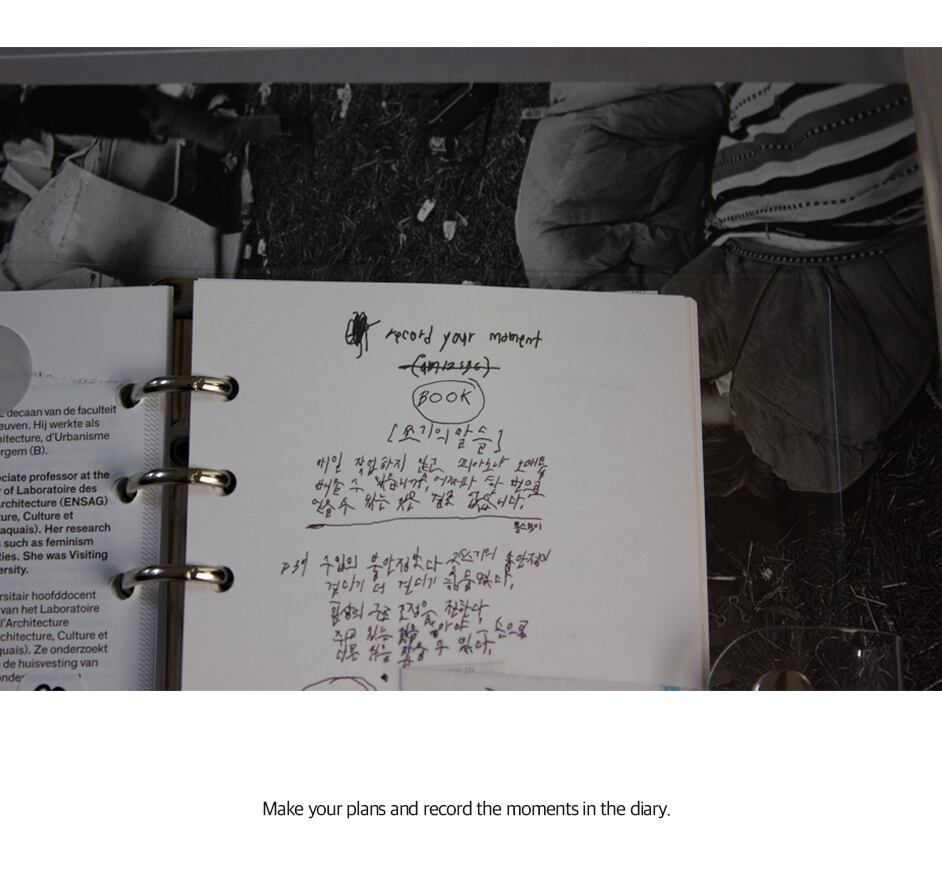 decaan van de faculteit
euven. Hij werkte als
hitecture, d'Urbanisme
ergem (B).
ociate professor at the
r of Laboratoire des
rchitecture (ENSAG)
ure, Culture et
aquais). Her research
s such as feminism
ties. She was Visiting
ersity.
rsitair hoofddocent
van het Laboratoire
l'Architecture
chitecture, Culture et
quais). Ze onderzoekt
de huisvesting van
onder
record your moment
BOOK
[쓰기의 말들]
매일 작업하지 않고 피아노나 노래를
배울 수 있습니까, 어쩌다 한 번으로
얻을 수 있는 것은 결코 없습니다.
톨스토이
p 39 수입의 불안정보다 글쓰기의 불안정이
견디기 더 견디기 힘들었다,
쥐고 있는 것을 놓아야 손으로
다른 것을 잡을 수 있다,
Make your plans and record the moments in the diary.